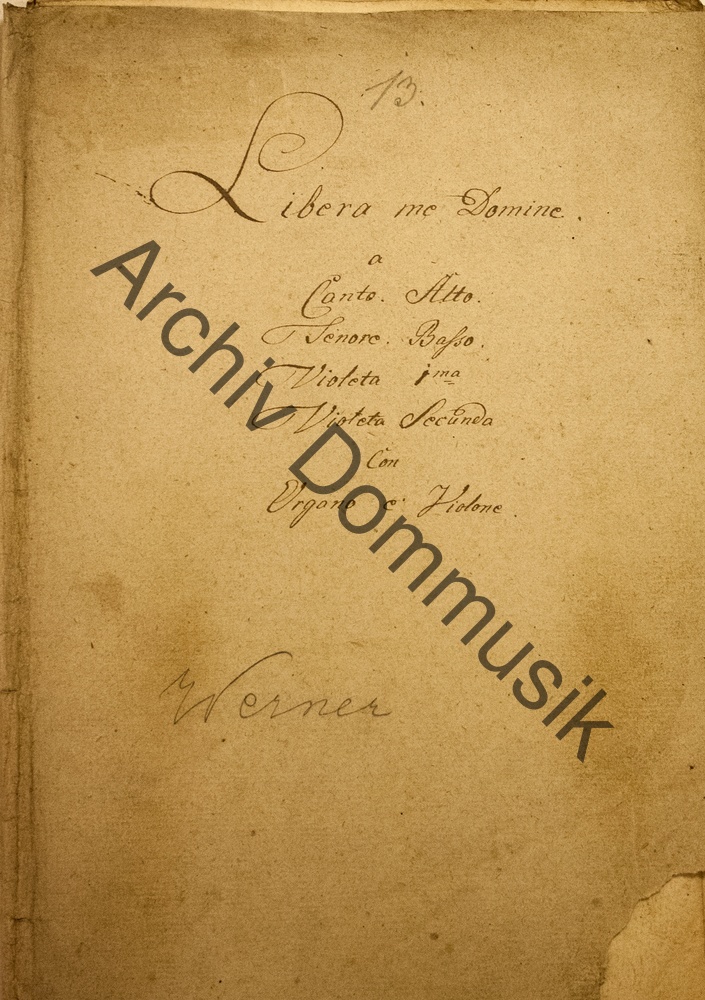 13.
Libera me Domine.
a
Canto. Alto.
Tenore. Basso.
Violeta 1ma
Violeta Secunda
Con
Organo e Violone.
Werner
Archiv Dommusik